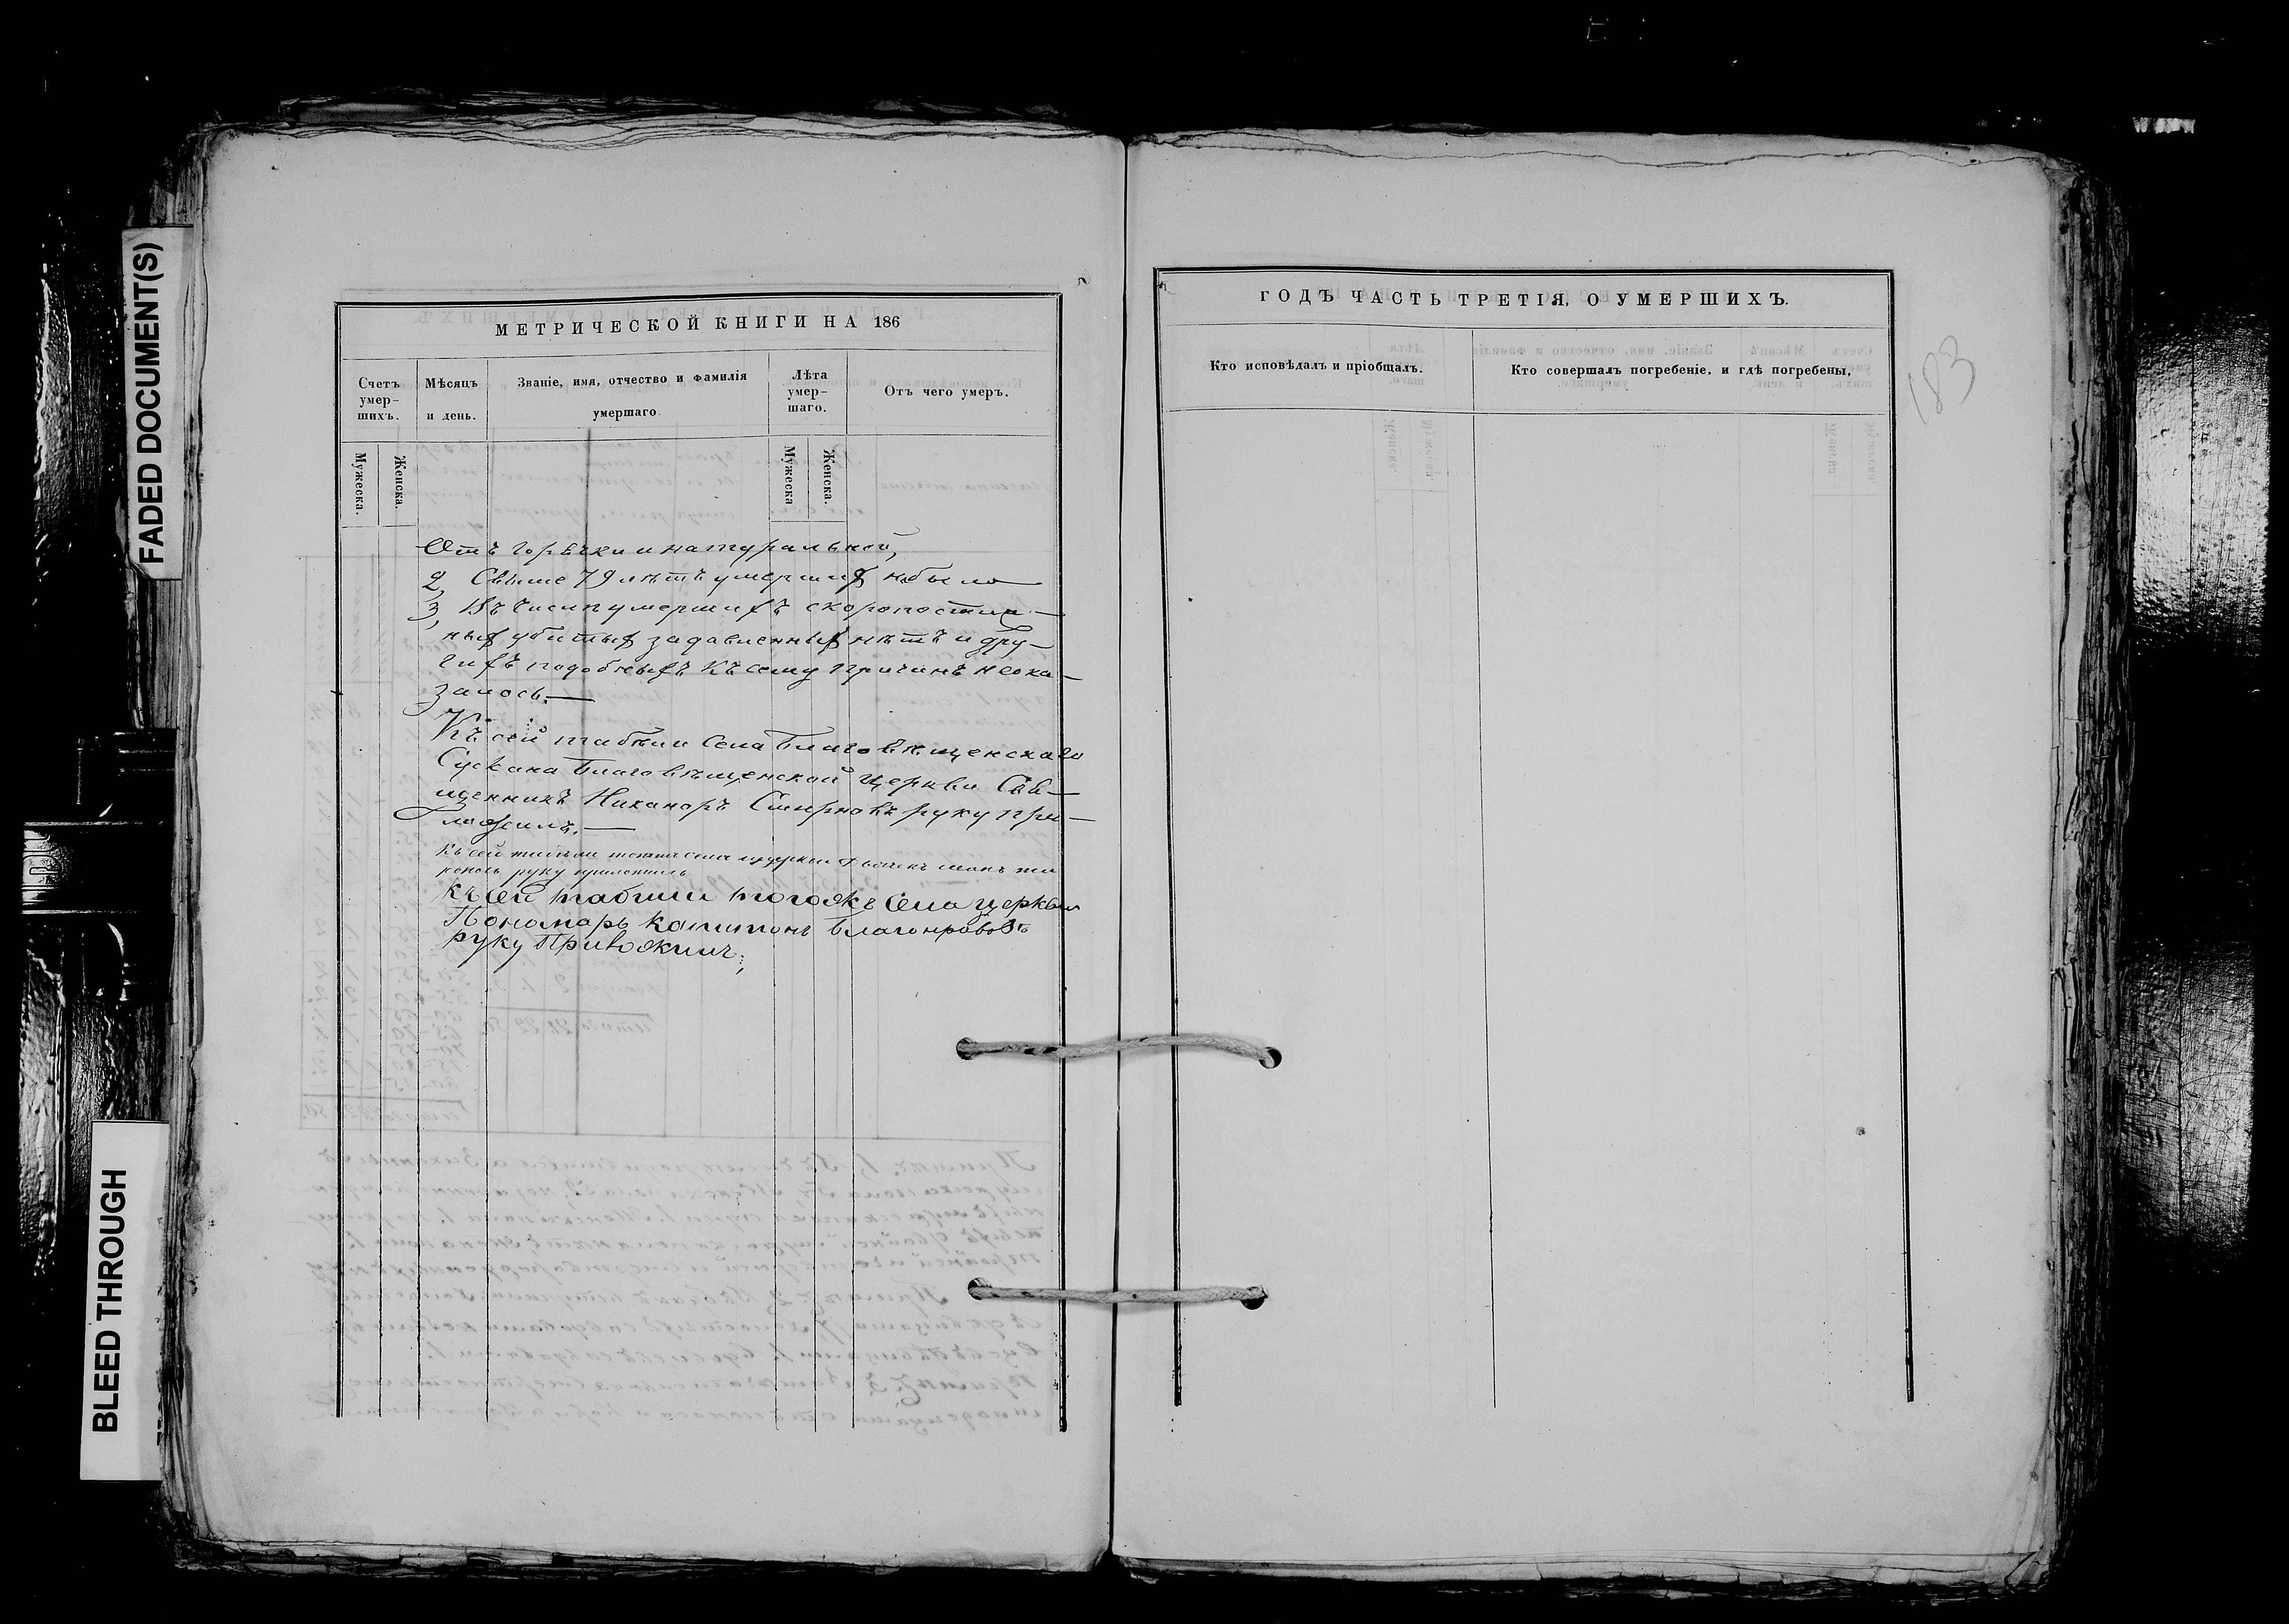 FADED DOCUMENT(S)
BLEED THROUGH
МЕТРИЧЕСКОЙ КНИГИ НА 186
Счетъ умер-шихъ.
Мѣсяцъ и день.
Званіе, имя, отчество и фамилія умершаго.
Лѣта умер-шаго.
Отъ чего умеръ.
Мужеска.
Женска.
Мужеска
Женска.
Отъ горячки и натуральной,
2, Свыше 79 лѣтъ умерших небыло
3, Въ числѣ умершихъ скоропостиж-
ных убитых задавленных нѣтъ и дру-
гихъ подобныхъ къ сему причинъ неока-
залось.
Къ сей табели Села Благовѣщенскаго
Сускана Благовѣщенской церкви Свя-
щенникъ Никаноръ Смирновъ руку при-
ложилъ.
Къ сей табели тогожъ села церкви
руку приложилъ
Къ сей табели тогожъ Села церкви
Пономарь Капитонъ Благонравовъ
руку приложилъ;
ГОДЪ ЧАСТЬ ТРЕТІЯ, О УМЕРШИХЪ.
Кто исповѣдалъ и пріобщалъ.
Кто совершалъ погребеніе, и гдѣ погребены,
183